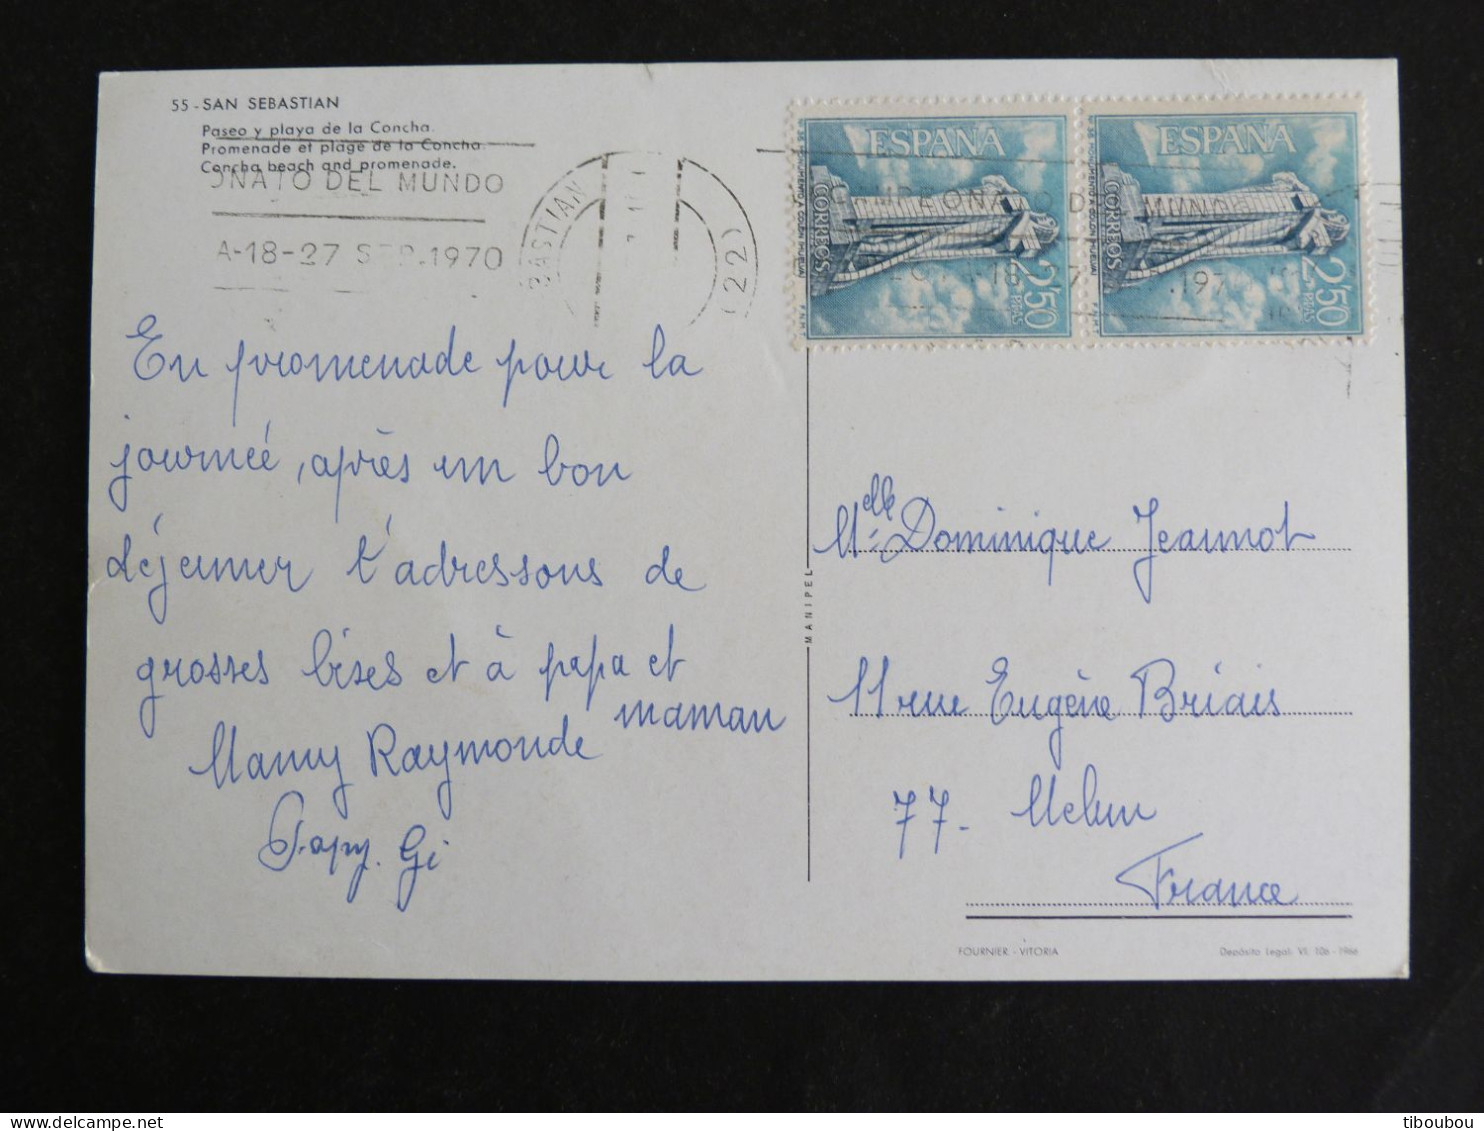 55 - SAN SEBASTIAN
Paseo y playa de la Concha.
Promenade et plage de la Concha.
Concha beach and promenade.
ONATO DEL MUNDO
A-18-27 SEP.1970
BASTIAN
(22)
ESPAÑA
CORREOS
2'50
PTAS
ESPAÑA
CORREOS
2'50
PTAS
CAMPEONATO DEL MUNDO
En promenade pour la
journée, après un bon
déjeuner t'adressons de
grosses bises et à papa et
maman
Mamy Raymonde
Papy. Gi
MANIPEL
Melle Dominique Jeannot
11 rue Eugène Briais
77- Melun
France
FOURNIER - VITORIA
Depósito Legal: VI. 106 - 1966
tiboubou